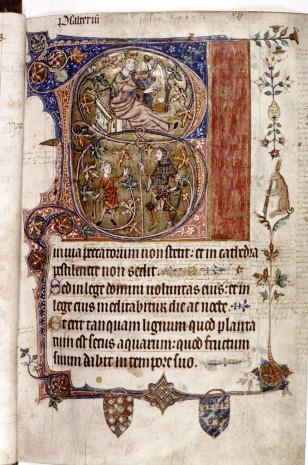 Psalteriū
B
in uia peccatorum non stetit: et in cathedra
pestilentie non sedit.
Sed in lege domini uoluntas eius: et in
lege eius meditabitur die ac nocte.
Et erit tanquam lignum quod planta
tum est secus aquarum: quod fructum
suum dabit in tempore suo.